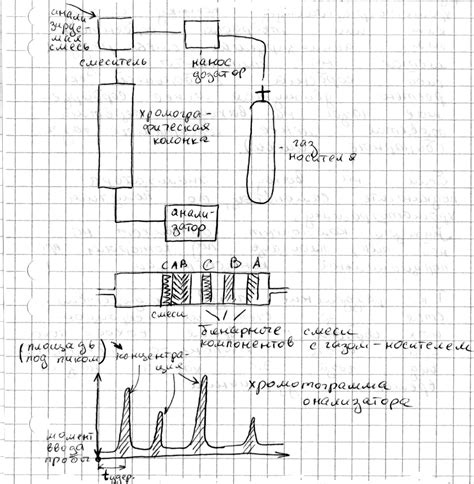 анали
зируе-
мая
смесь
смеситель
нанос
дозатор
хромогра-
фическая
колонка
газ
носитель
анали-
затор
C A B C B A
смеси
бинарные смеси
компонентов с газом-носителем
(площадь
под пиком)
концентра-
ция
хромотограмма
онализатора
момент
ввода
пробы
tудер.